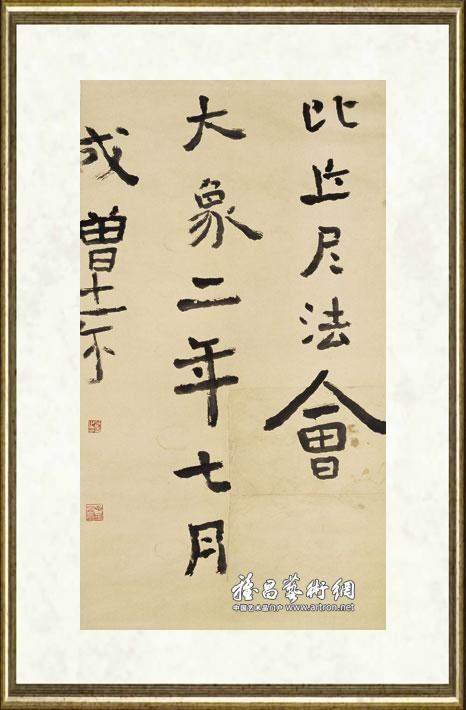 比丘尼法會
大象二年七月
成 曾
雅昌藝術網
中国艺术品门户 www.artron.net